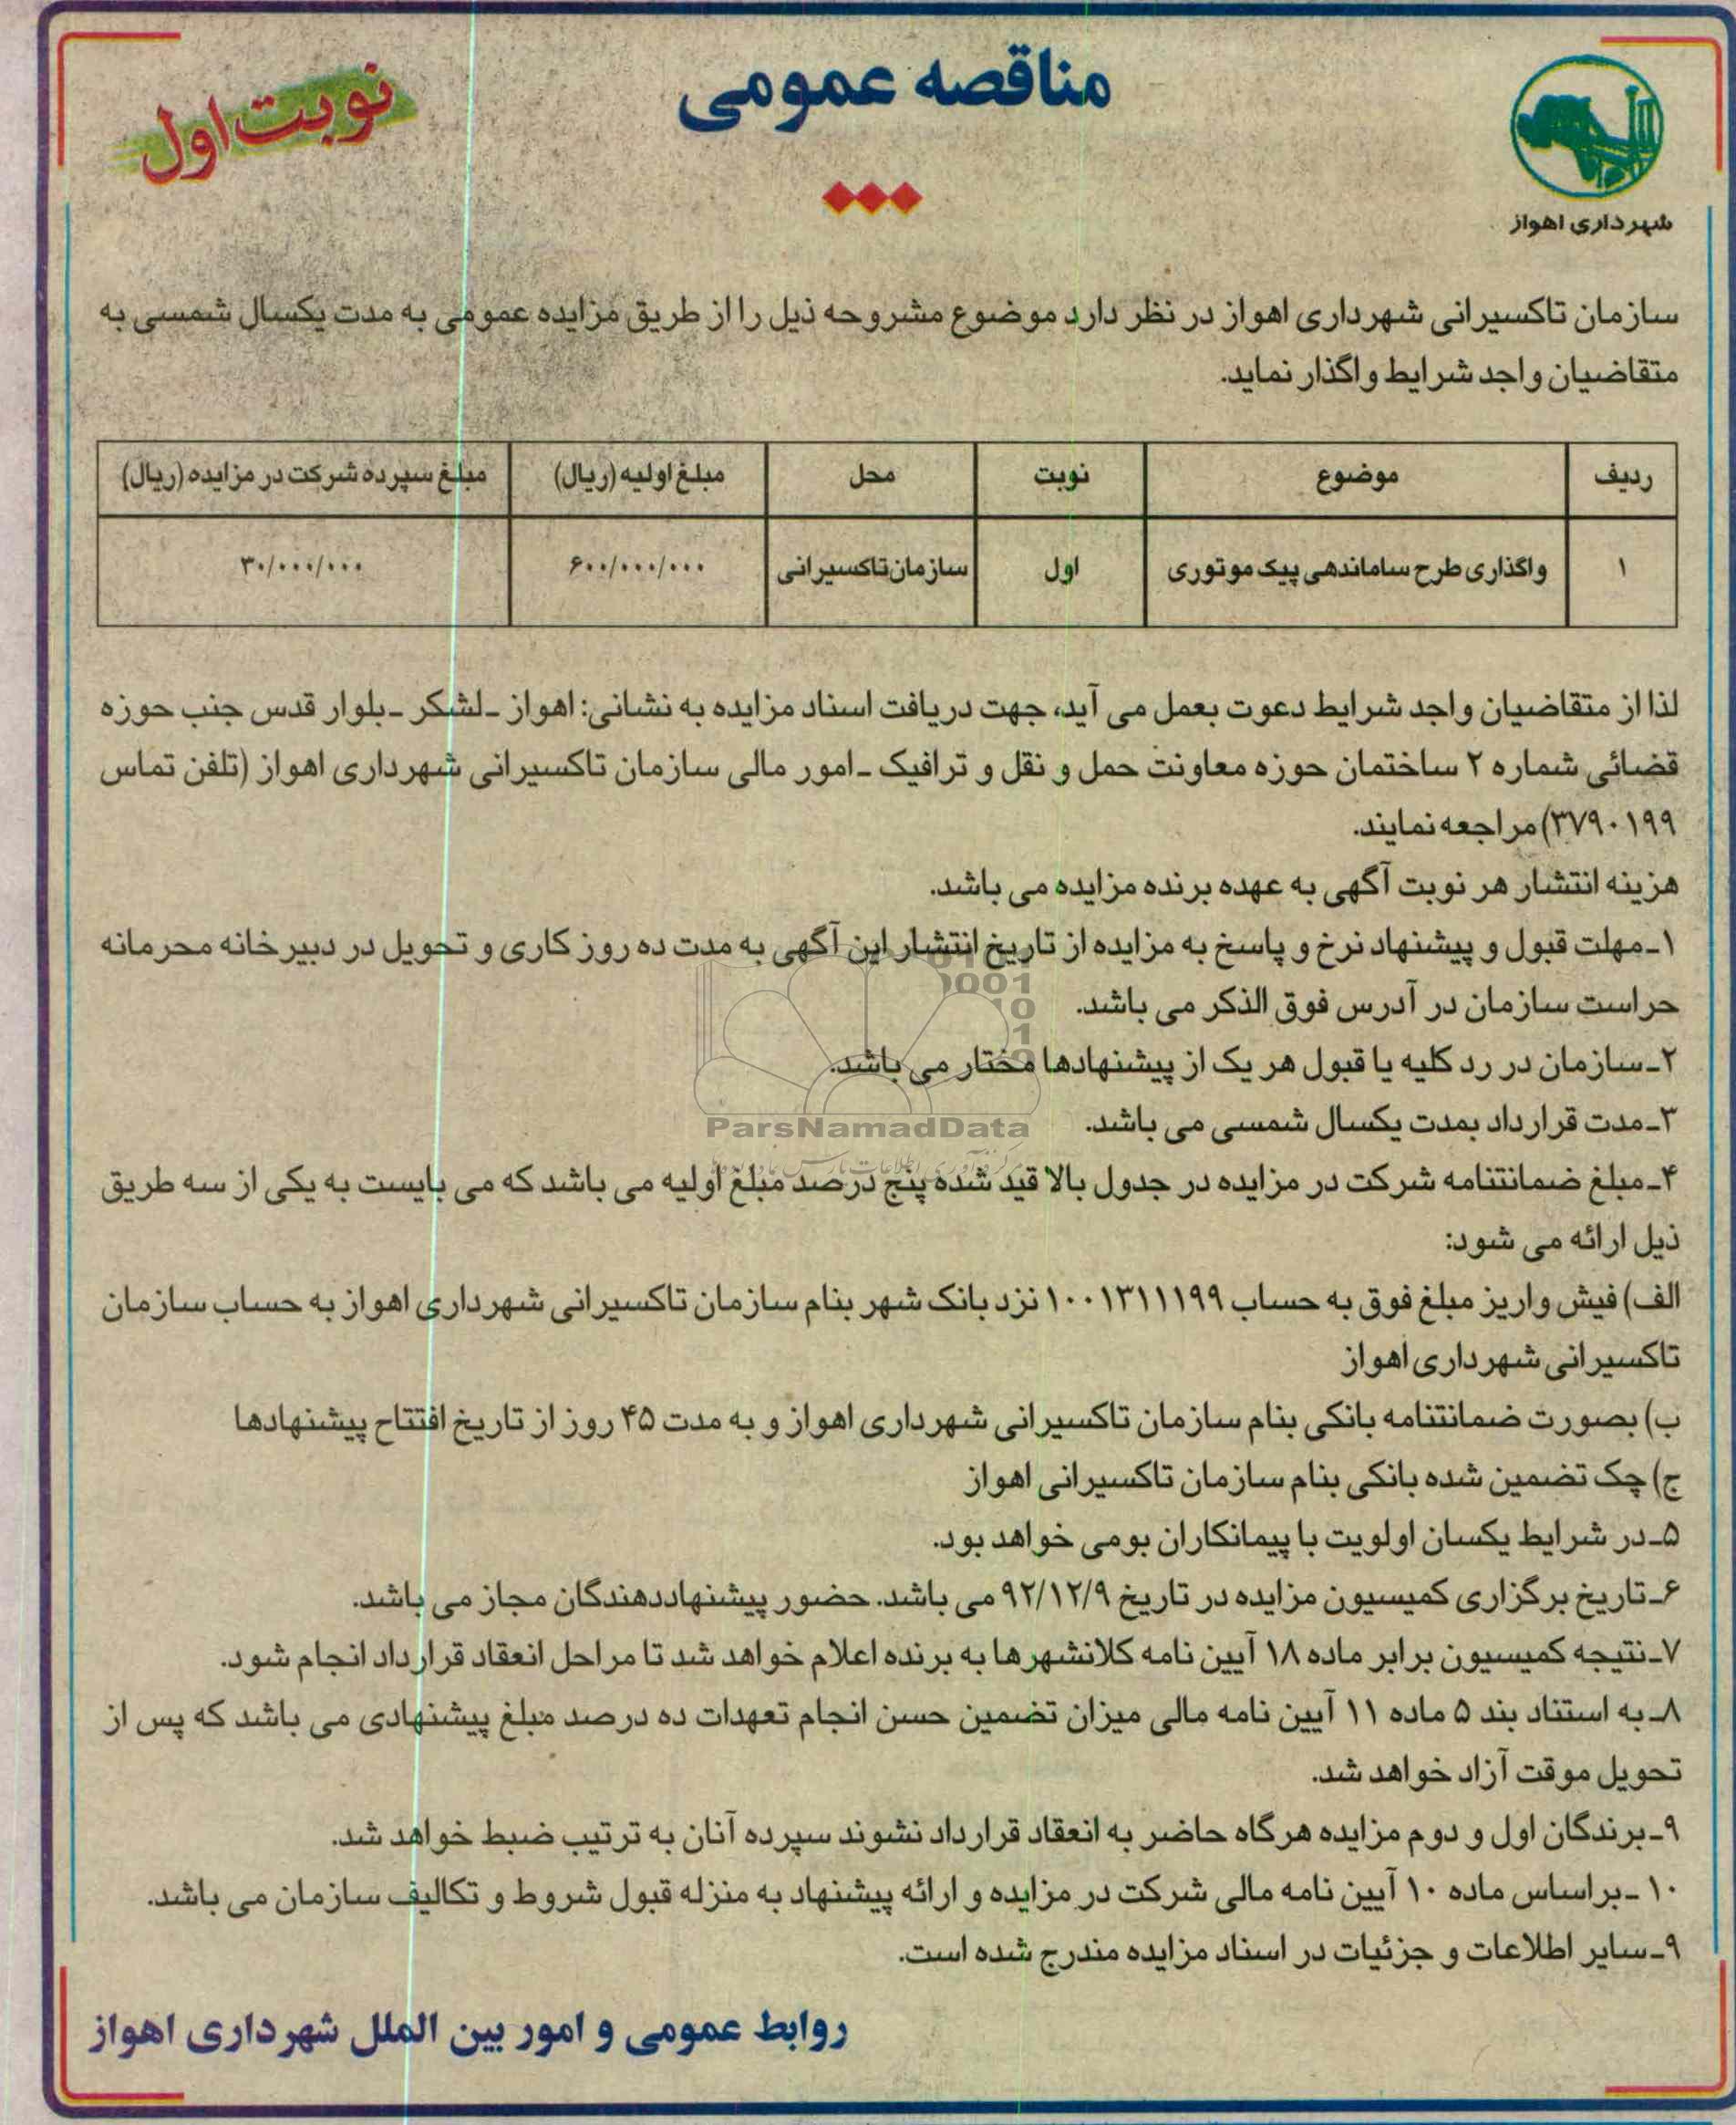 مناقصه عمومی
نوبت اول
شهرداری اهواز
سازمان تاکسیرانی شهرداری اهواز در نظر دارد موضوع مشروحه ذیل را از طریق مزایده عمومی به مدت یکسال شمسی به
متقاضیان واجد شرایط واگذار نماید.
ردیف موضوع نوبت محل مبلغ اولیه (ریال) مبلغ سپرده شرکت در مزایده (ریال)
۱ واگذاری طرح ساماندهی پیک موتوری اول سازمان تاکسیرانی ۶۰۰/۰۰۰/۰۰۰ ۳۰/۰۰۰/۰۰۰
لذا از متقاضیان واجد شرایط دعوت بعمل می آید، جهت دریافت اسناد مزایده به نشانی: اهواز ـ لشکر ـ بلوار قدس جنب حوزه
قضائی شماره ۲ ساختمان حوزه معاونت حمل و نقل و ترافیک ـ امور مالی سازمان تاکسیرانی شهرداری اهواز (تلفن تماس
۳۷۹۰۱۹۹) مراجعه نمایند.
هزینه انتشار هر نوبت آگهی به عهده برنده مزایده می باشد.
۱ـ مهلت قبول و پیشنهاد نرخ و پاسخ به مزایده از تاریخ انتشار این آگهی به مدت ده روز کاری و تحویل در دبیرخانه محرمانه
حراست سازمان در آدرس فوق الذکر می باشد.
۲ـ سازمان در رد کلیه یا قبول هر یک از پیشنهادها مختار می باشد.
۳ـ مدت قرارداد بمدت یکسال شمسی می باشد.
ParsNamadData
۴ـ مبلغ ضمانتنامه شرکت در مزایده در جدول بالا قید شده پنج درصد مبلغ اولیه می باشد که می بایست به یکی از سه طریق
ذیل ارائه می شود:
الف) فیش واریز مبلغ فوق به حساب ۱۰۰۱۳۱۱۱۹۹ نزد بانک شهر بنام سازمان تاکسیرانی شهرداری اهواز به حساب سازمان
تاکسیرانی شهرداری اهواز
ب) بصورت ضمانتنامه بانکی بنام سازمان تاکسیرانی شهرداری اهواز و به مدت ۴۵ روز از تاریخ افتتاح پیشنهادها
ج) چک تضمین شده بانکی بنام سازمان تاکسیرانی اهواز
۵ـ در شرایط یکسان اولویت با پیمانکاران بومی خواهد بود.
۶ـ تاریخ برگزاری کمیسیون مزایده در تاریخ ۹۲/۱۲/۹ می باشد. حضور پیشنهاددهندگان مجاز می باشد.
۷ـ نتیجه کمیسیون برابر ماده ۱۸ آیین نامه کلانشهرها به برنده اعلام خواهد شد تا مراحل انعقاد قرارداد انجام شود.
۸ـ به استناد بند ۵ ماده ۱۱ آیین نامه مالی میزان تضمین حسن انجام تعهدات ده درصد مبلغ پیشنهادی می باشد که پس از
تحویل موقت آزاد خواهد شد.
۹ـ برندگان اول و دوم مزایده هرگاه حاضر به انعقاد قرارداد نشوند سپرده آنان به ترتیب ضبط خواهد شد.
۱۰ ـ براساس ماده ۱۰ آیین نامه مالی شرکت در مزایده و ارائه پیشنهاد به منزله قبول شروط و تکالیف سازمان می باشد.
۹ـ سایر اطلاعات و جزئیات در اسناد مزایده مندرج شده است.
روابط عمومی و امور بین الملل شهرداری اهواز